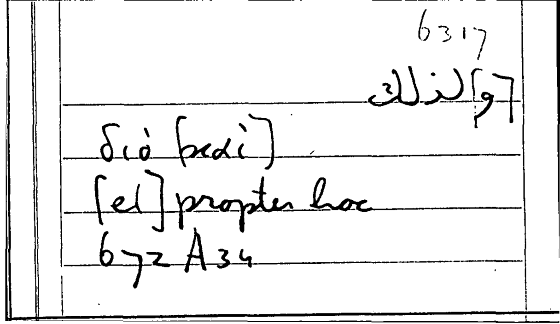 6317
[و]لذلك
διὸ [καὶ]
[et] propter hoc
672 A 34